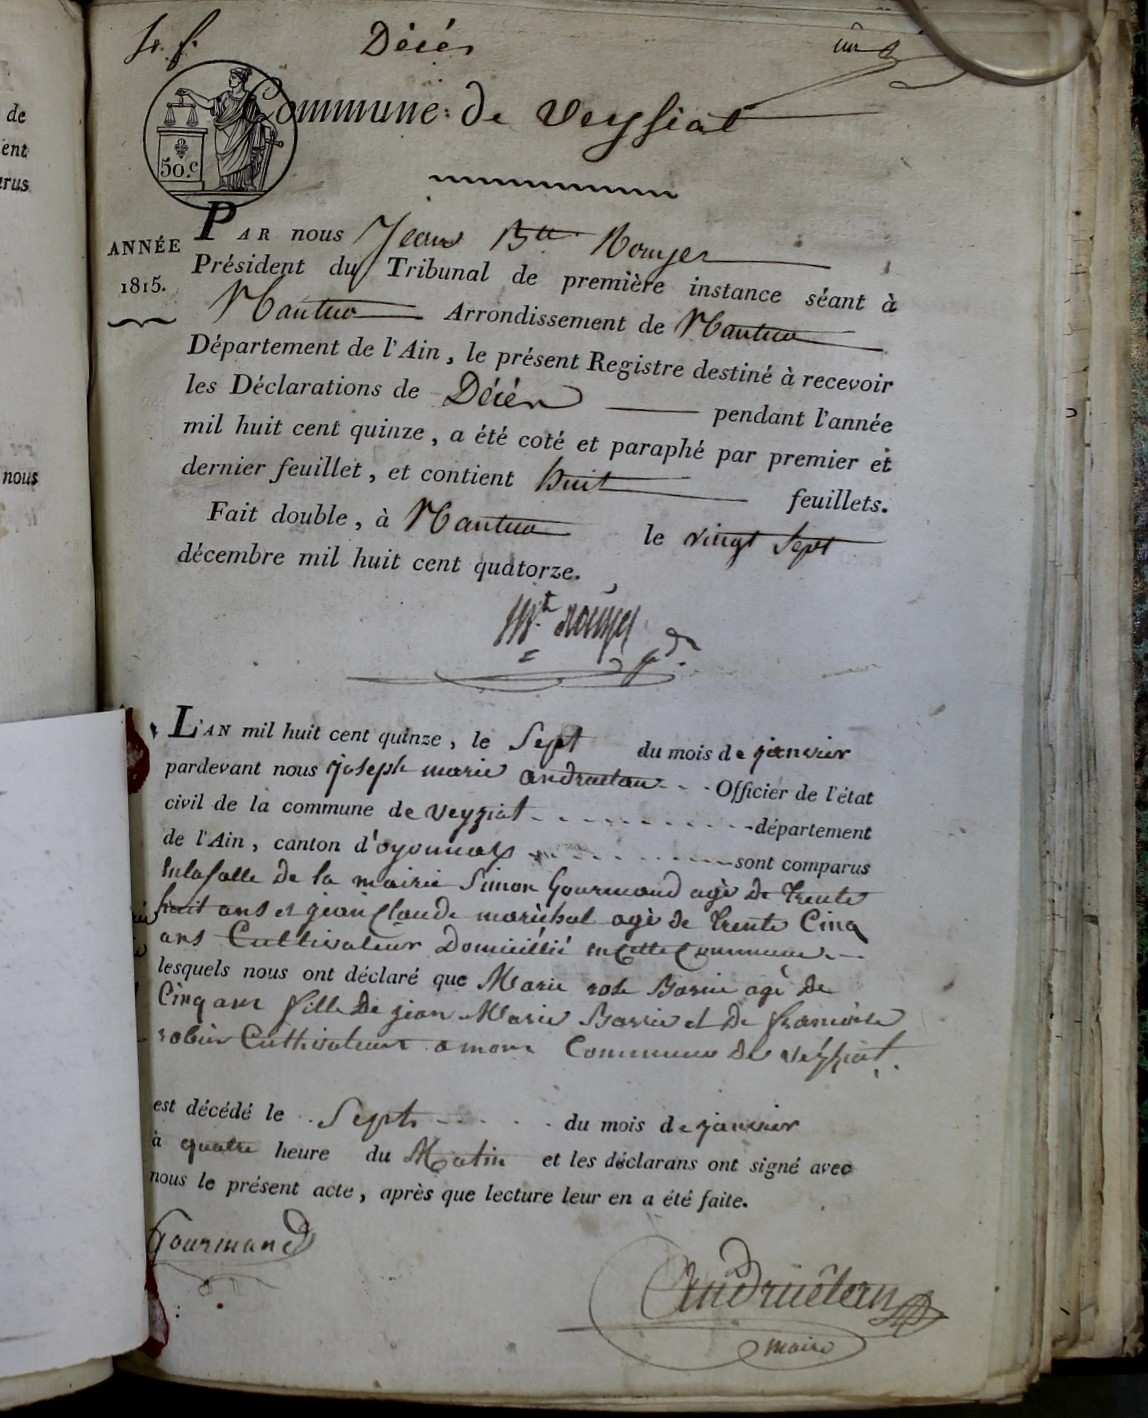 Décés
Commune de veyssiat
50.c
de
ent
arus
nous
ANNÉE
1815.
PAR nous Jean Btte Rouyer
Président du Tribunal de première instance séant à
Nantua Arrondissement de Nantua
Département de l'Ain, le présent Registre destiné à recevoir
les Déclarations de Décés pendant l'année
mil huit cent quinze, a été coté et paraphé par premier et
dernier feuillet, et contient huit feuillets.
Fait double, à Nantua le vingt sept
décembre mil huit cent quatorze.
L'AN mil huit cent quinze, le Sept du mois de janvier
pardevant nous joseph marie andruetan Officier de l'état
civil de la commune de veyziat département
de l'Ain, canton d'oyonnax sont comparus
en la salle de la mairie Simon Gourmand agé de trente
huit ans et jean Claude maréchal agé de trente Cinq
ans Cultivateur Domicillié en cette Commune
lesquels nous ont déclaré que Marie rose agé de
Cinq ans fille de jean Marie et de francoise
robin Cultivateur Commune de veyziat.
est décédé le Sept du mois de janvier
à quatre heure du Matin et les déclarans ont signé avec
nous le présent acte, après que lecture leur en a été faite.
Gourmand
Andruétan
maire